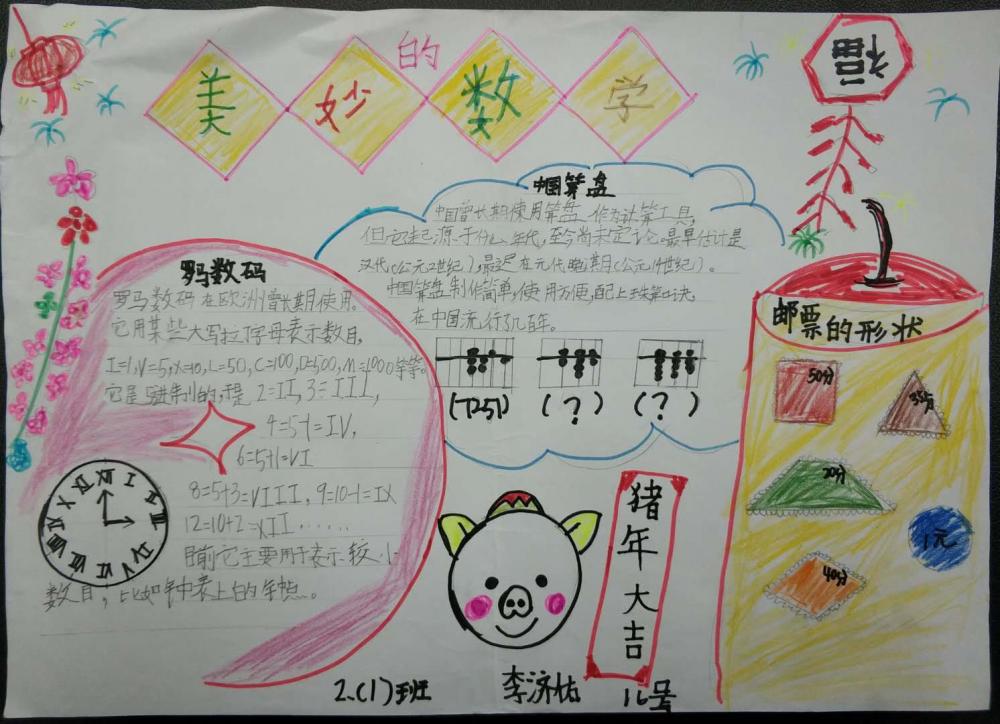 美妙的数学
福
中国算盘
中国曾长期使用算盘作为计算工具,
但它起源于什么年代,至今尚未定论。最早估计是
汉代(公元2世纪),最迟在元代晚期(公元14世纪)。
中国算盘制作简单,使用方便,配上珠算口诀,
在中国流行了几百年。
(7251) (?) (?)
罗马数码
罗马数码在欧洲曾长期使用。
它用某些大写拉丁字母表示数目,
I=1,V=5,X=10,L=50,C=100,D=500,M=1000等等。
2=II,3=III,
4=5-1=IV,
6=5+1=VI
8=5+3=VIII,9=10-1=IX
12=10+2=XII……
目前它主要用于表示较小
数目,比如钟表上的
邮票的形状
50分
35分
20分
1元
40分
猪年大吉
2.(1)班 李济佑 16号